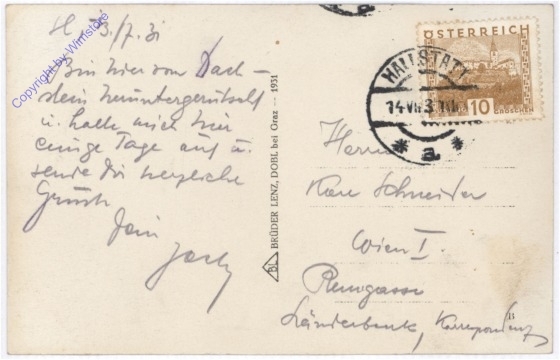 H., 13./7.31
Bin hier vom Dach-
stein heruntergerutscht
u. halte mich hier
einige Tage auf u.
sende Dir herzliche
Grüsse
Dein
BRÜDER LENZ, DOBL bei Graz — 1931
BL
ÖSTERREICH
10
GROSCHEN
HALLSTATT
14.VII.31
* a *
Herrn
Schneider
Wien I.
Renngasse
Länderbank, Korrespondenz
Copyright by Winistoerfer